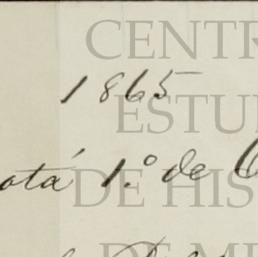 CENTR
1865
ESTU
otá 1.º de
DE HIS
DE M